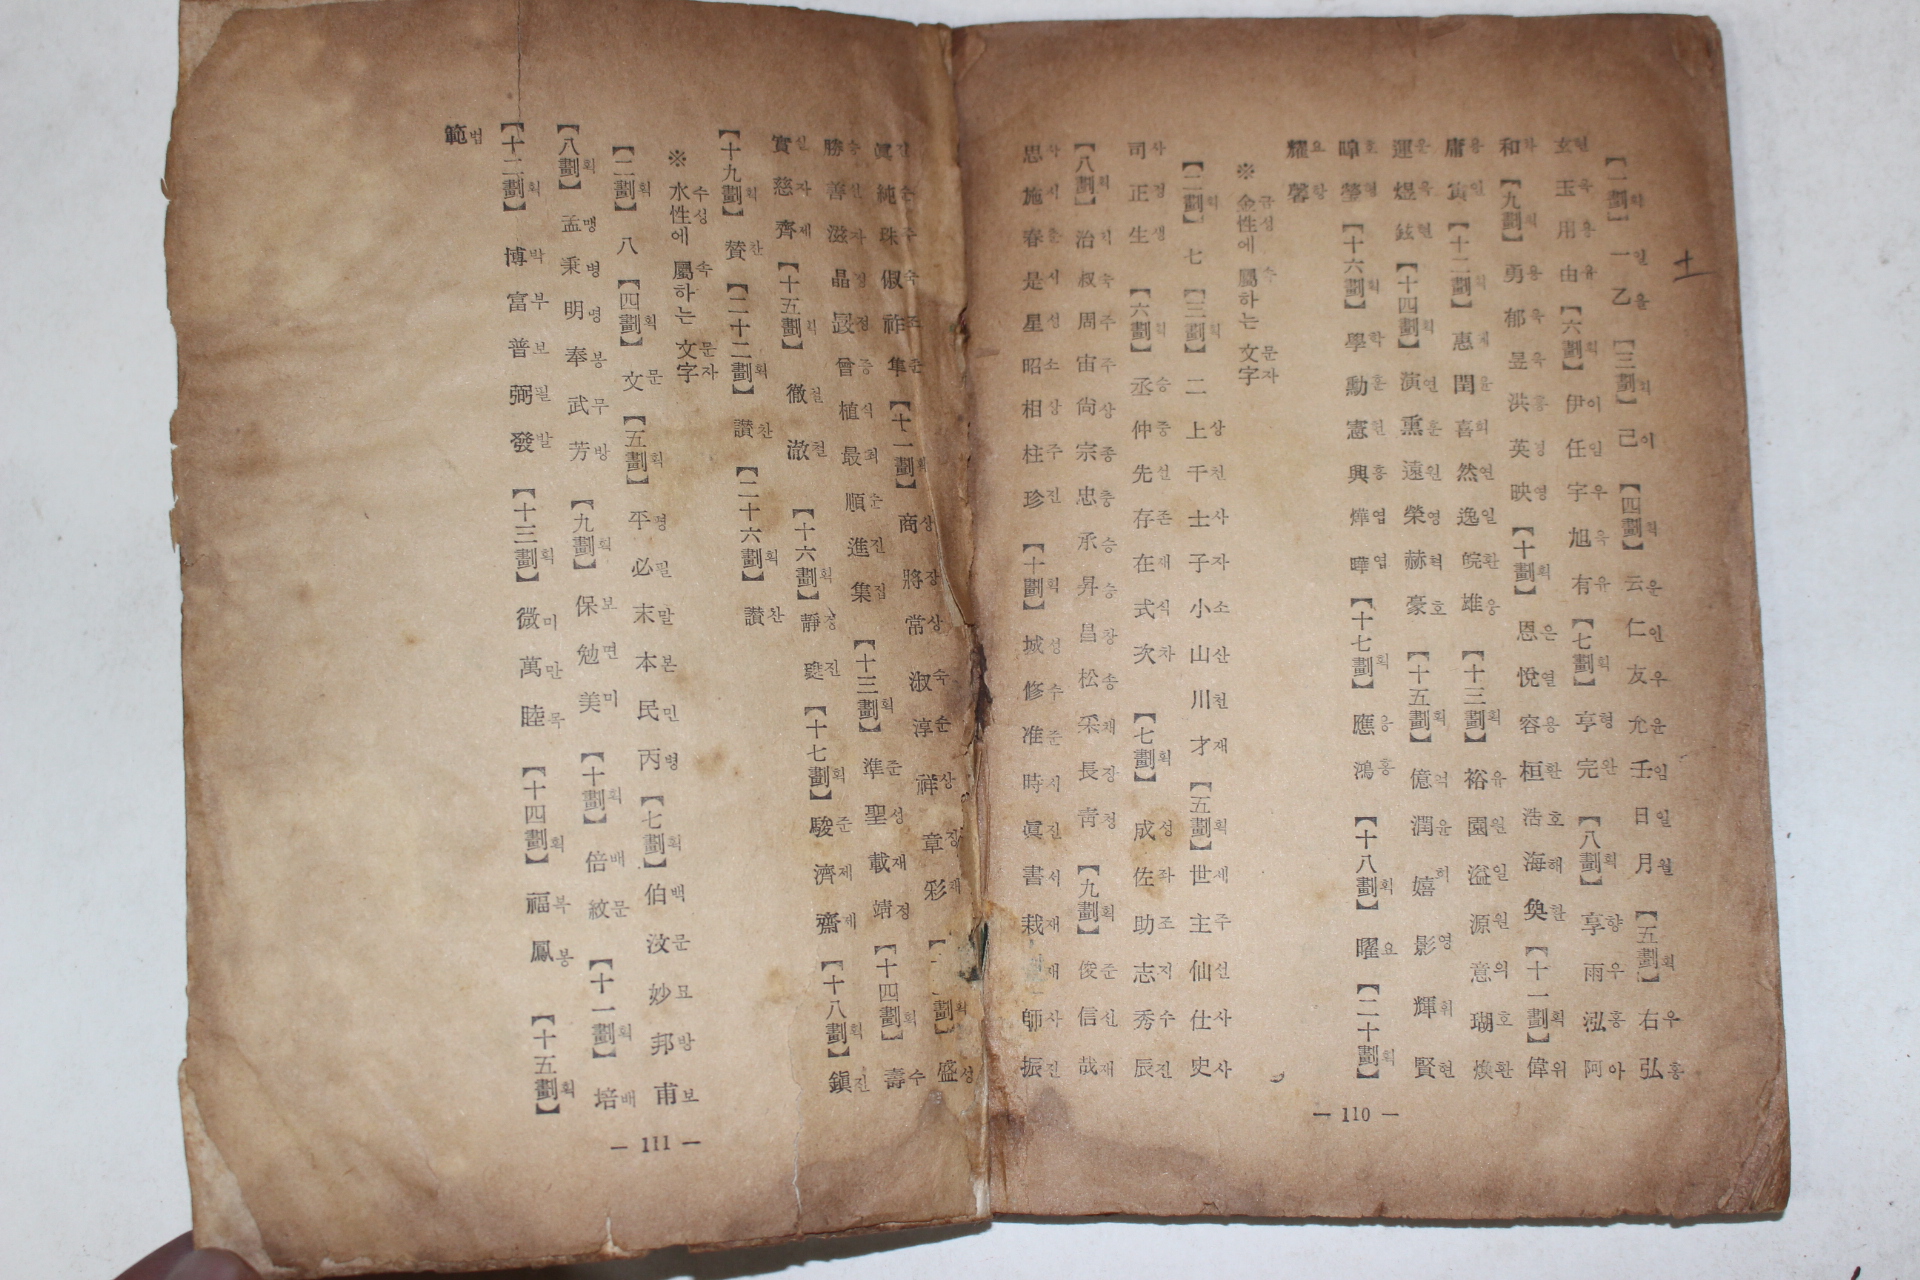 土
【一劃획】 一일 乙을 【三劃획】 己이 【四劃획】 云운 仁인 友우 允윤 壬임 日일 月월 【五劃획】 右우 弘홍
玄현 玉옥 用용 由유 【六劃획】 伊이 任임 宇우 旭욱 有유 【七劃획】 亨형 完완 【八劃획】 享향 雨우 泓홍 阿아
和화 【九劃획】 勇용 郁욱 昱욱 洪홍 英영 映영 【十劃획】 恩은 悅열 容용 桓환 浩호 海해 奐환 【十一劃획】 偉위
庸용 寅인 【十二劃획】 惠혜 閏윤 喜희 然연 逸일 皖환 雄웅 【十三劃획】 裕유 園원 溢일 源원 意의 瑚호 煥환
運운 煜욱 鉉현 【十四劃획】 演연 熏훈 遠원 榮영 赫혁 豪호 【十五劃획】 億억 潤윤 嬉희 影영 輝휘 賢현
暭호 瑩형 【十六劃획】 學학 勳훈 憲헌 興흥 燁엽 曄엽 【十七劃획】 應응 鴻홍 【十八劃획】 曜요 【二十劃획】
耀요 馨향
※ 金금性성에 屬속하는 文문字자
【二劃획】 七 【三劃획】 二 上상 千천 士사 子자 小소 山산 川천 才재 【五劃획】 世세 主주 仙선 仕사 史사
司사 正정 生생 【六劃획】 丞승 仲중 先선 存존 在재 式식 次차 【七劃획】 成성 佐좌 助조 志지 秀수 辰진
【八劃획】 治치 叔숙 周주 宙주 尙상 宗종 忠충 承승 昇승 昌창 松송 采채 長장 靑청 【九劃획】 俊준 信신 哉재
思사 施시 春춘 是시 星성 昭소 相상 柱주 珍진 【十劃획】 城성 修수 准준 時시 眞진 書서 栽재 재 師사 振진
― 110 ―
眞진 純순 珠주 俶숙 祚조 隼준 【十一劃획】 商상 將장 常상 淑숙 淳순 祥상 章장 彩채 劃획】 盛성
勝승 善선 滋자 晶정 晸정 曾증 植식 最최 順순 進진 集집 【十三劃획】 準준 聖성 載재 靖정 【十四劃획】 壽수
實실 慈자 齊제 【十五劃획】 徹철 澈철 【十六劃획】 靜정 진 【十七劃획】 駿준 濟제 齋제 【十八劃획】 鎭진
【十九劃획】 贊찬 【二十二劃획】 讃찬 【二十六劃획】 讚찬
※ 水수性성에 屬속하는 文문字자
【二劃획】 八 【四劃획】 文문 【五劃획】 平평 必필 末말 本본 民민 丙병 【七劃획】 伯백 汶문 妙묘 邦방 甫보
【八劃획】 孟맹 秉병 明명 奉봉 武무 芳방 【九劃획】 保보 勉면 美미 【十劃획】 倍배 紋문 【十一劃획】 培배
【十二劃획】 博박 富부 普보 弼필 發발 【十三劃획】 微미 萬만 睦목 【十四劃획】 福복 鳳봉 【十五劃획】
範범
― 111 ―